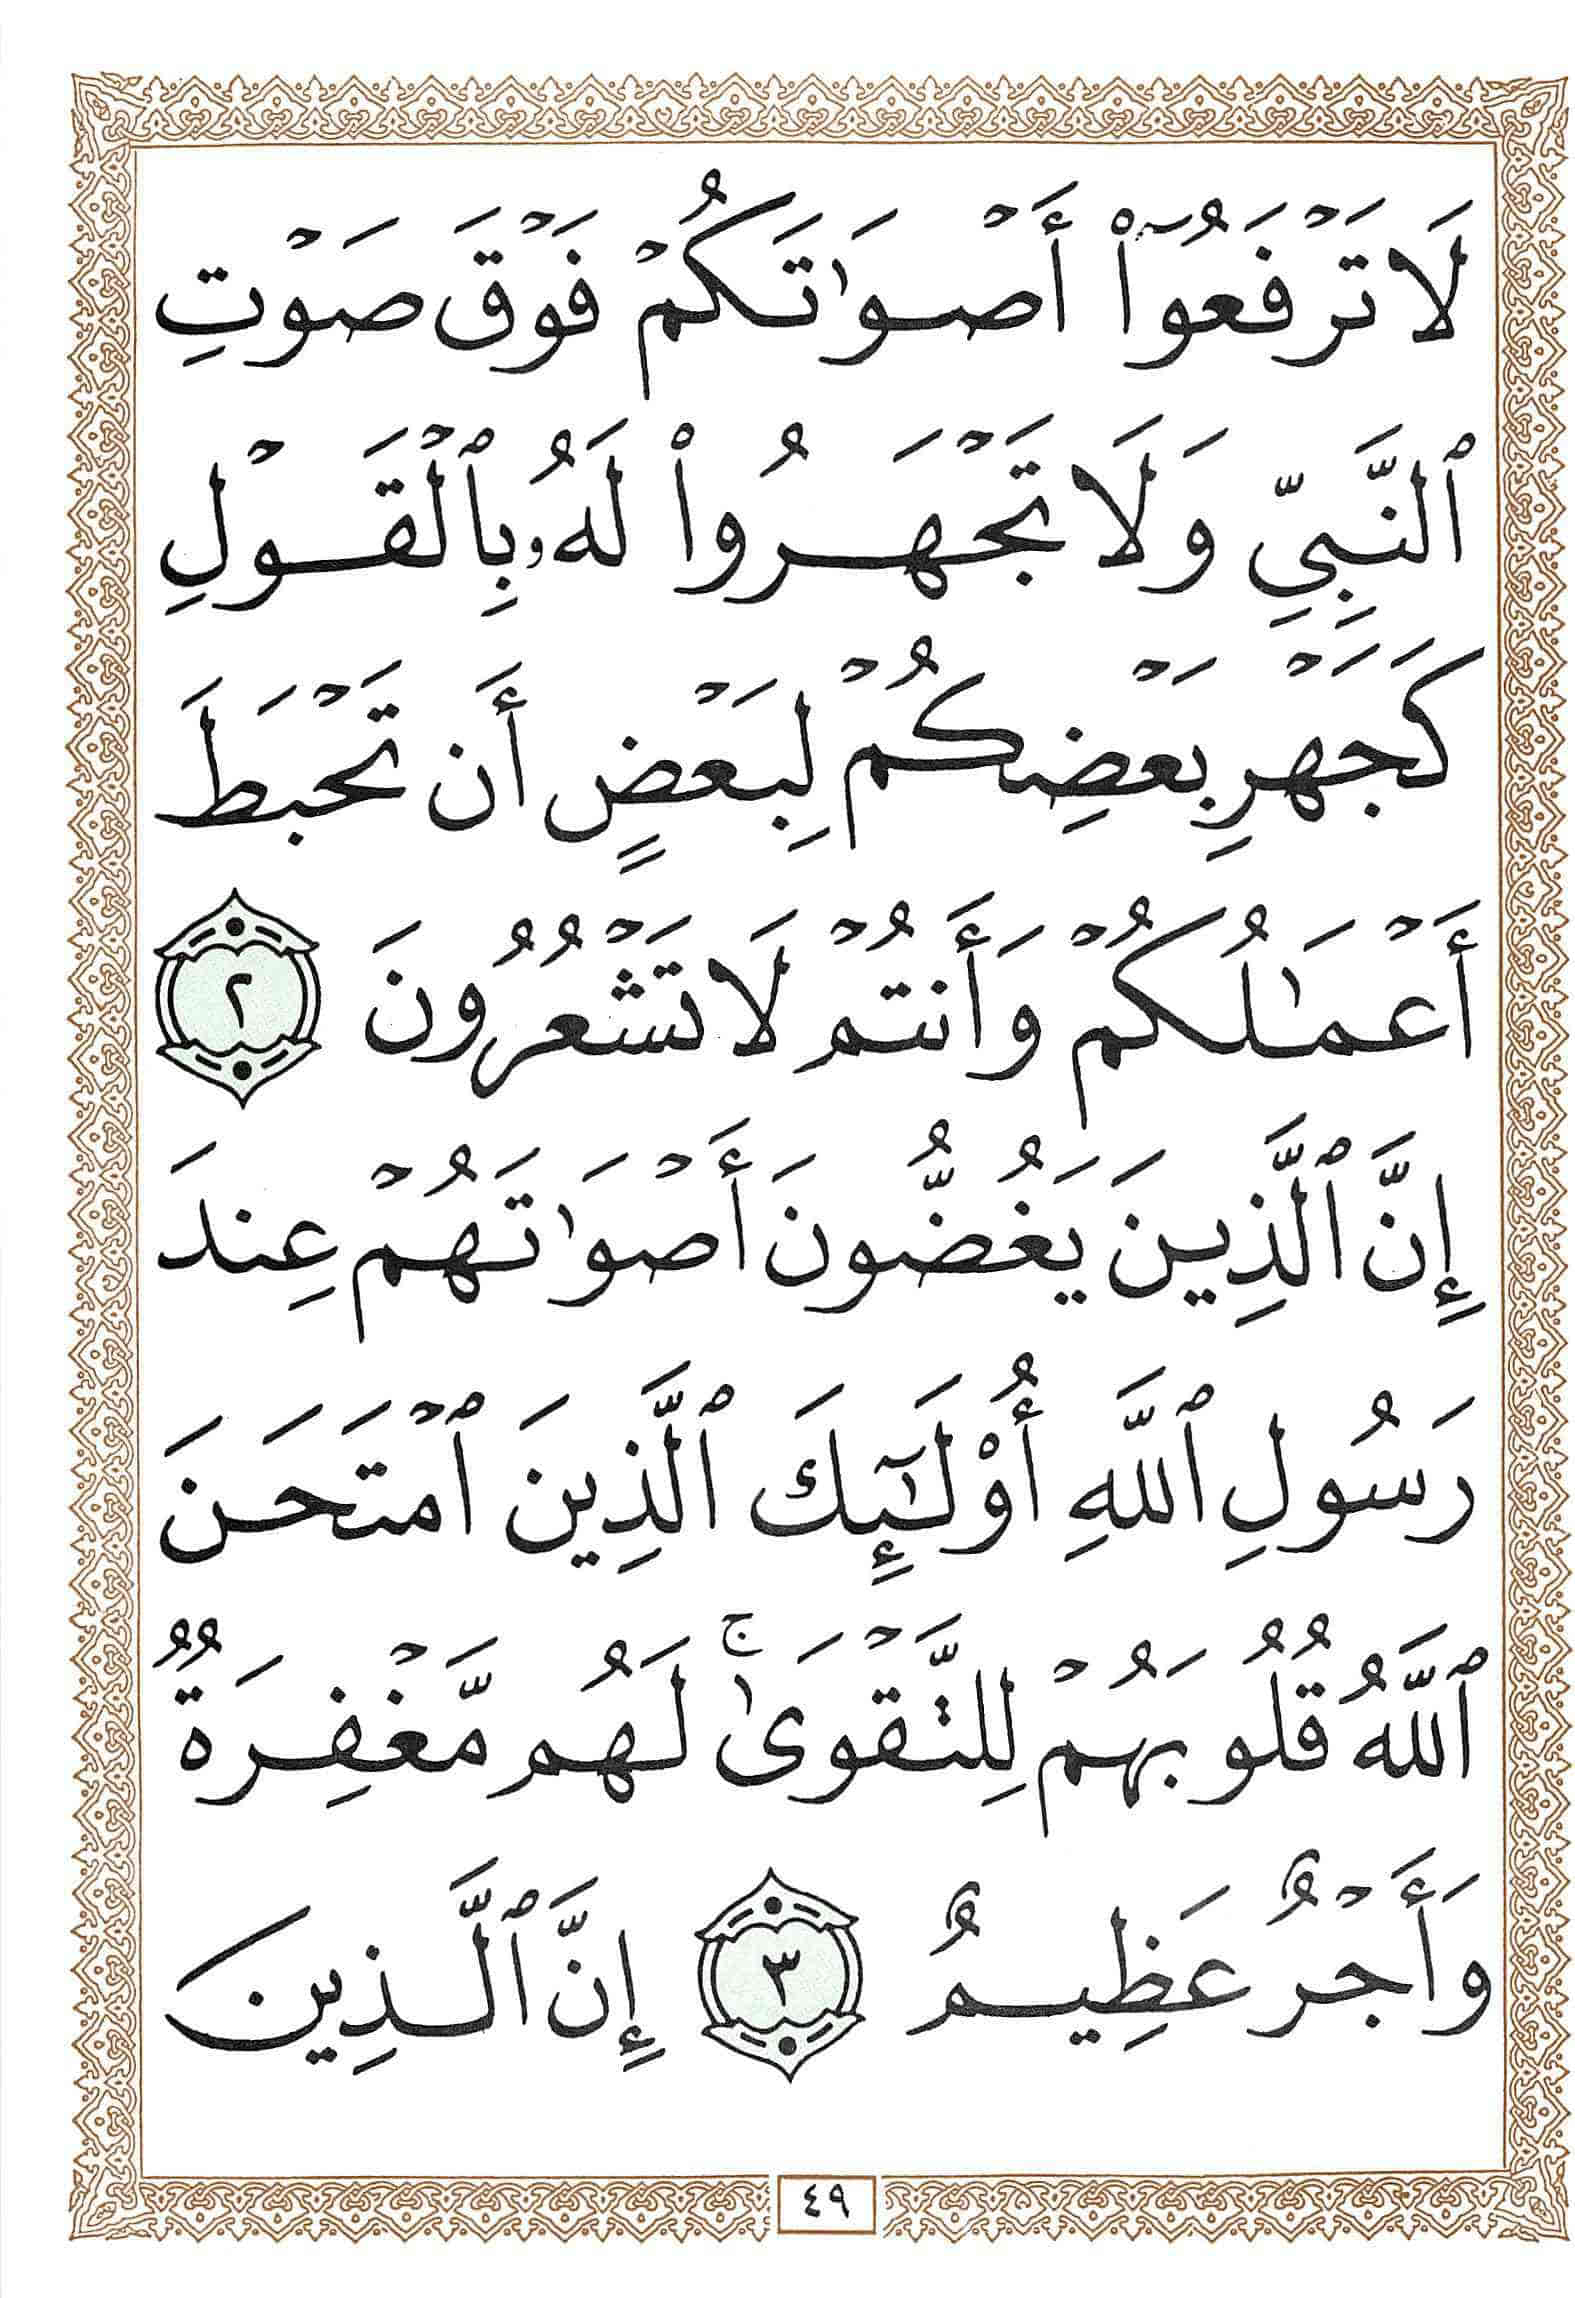 لَا تَرْفَعُوٓا۟ أَصْوَٰتَكُمْ فَوْقَ صَوْتِ
ٱلنَّبِيِّ وَلَا تَجْهَرُوا۟ لَهُۥ بِٱلْقَوْلِ
كَجَهْرِ بَعْضِكُمْ لِبَعْضٍ أَن تَحْبَطَ
أَعْمَـٰلُكُمْ وَأَنتُمْ لَا تَشْعُرُونَ ٢
إِنَّ ٱلَّذِينَ يَغُضُّونَ أَصْوَٰتَهُمْ عِندَ
رَسُولِ ٱللَّهِ أُو۟لَـٰٓئِكَ ٱلَّذِينَ ٱمْتَحَنَ
ٱللَّهُ قُلُوبَهُمْ لِلتَّقْوَىٰ ۚ لَهُم مَّغْفِرَةٌ
وَأَجْرٌ عَظِيمٌ ٣ إِنَّ ٱلَّذِينَ
٤٩